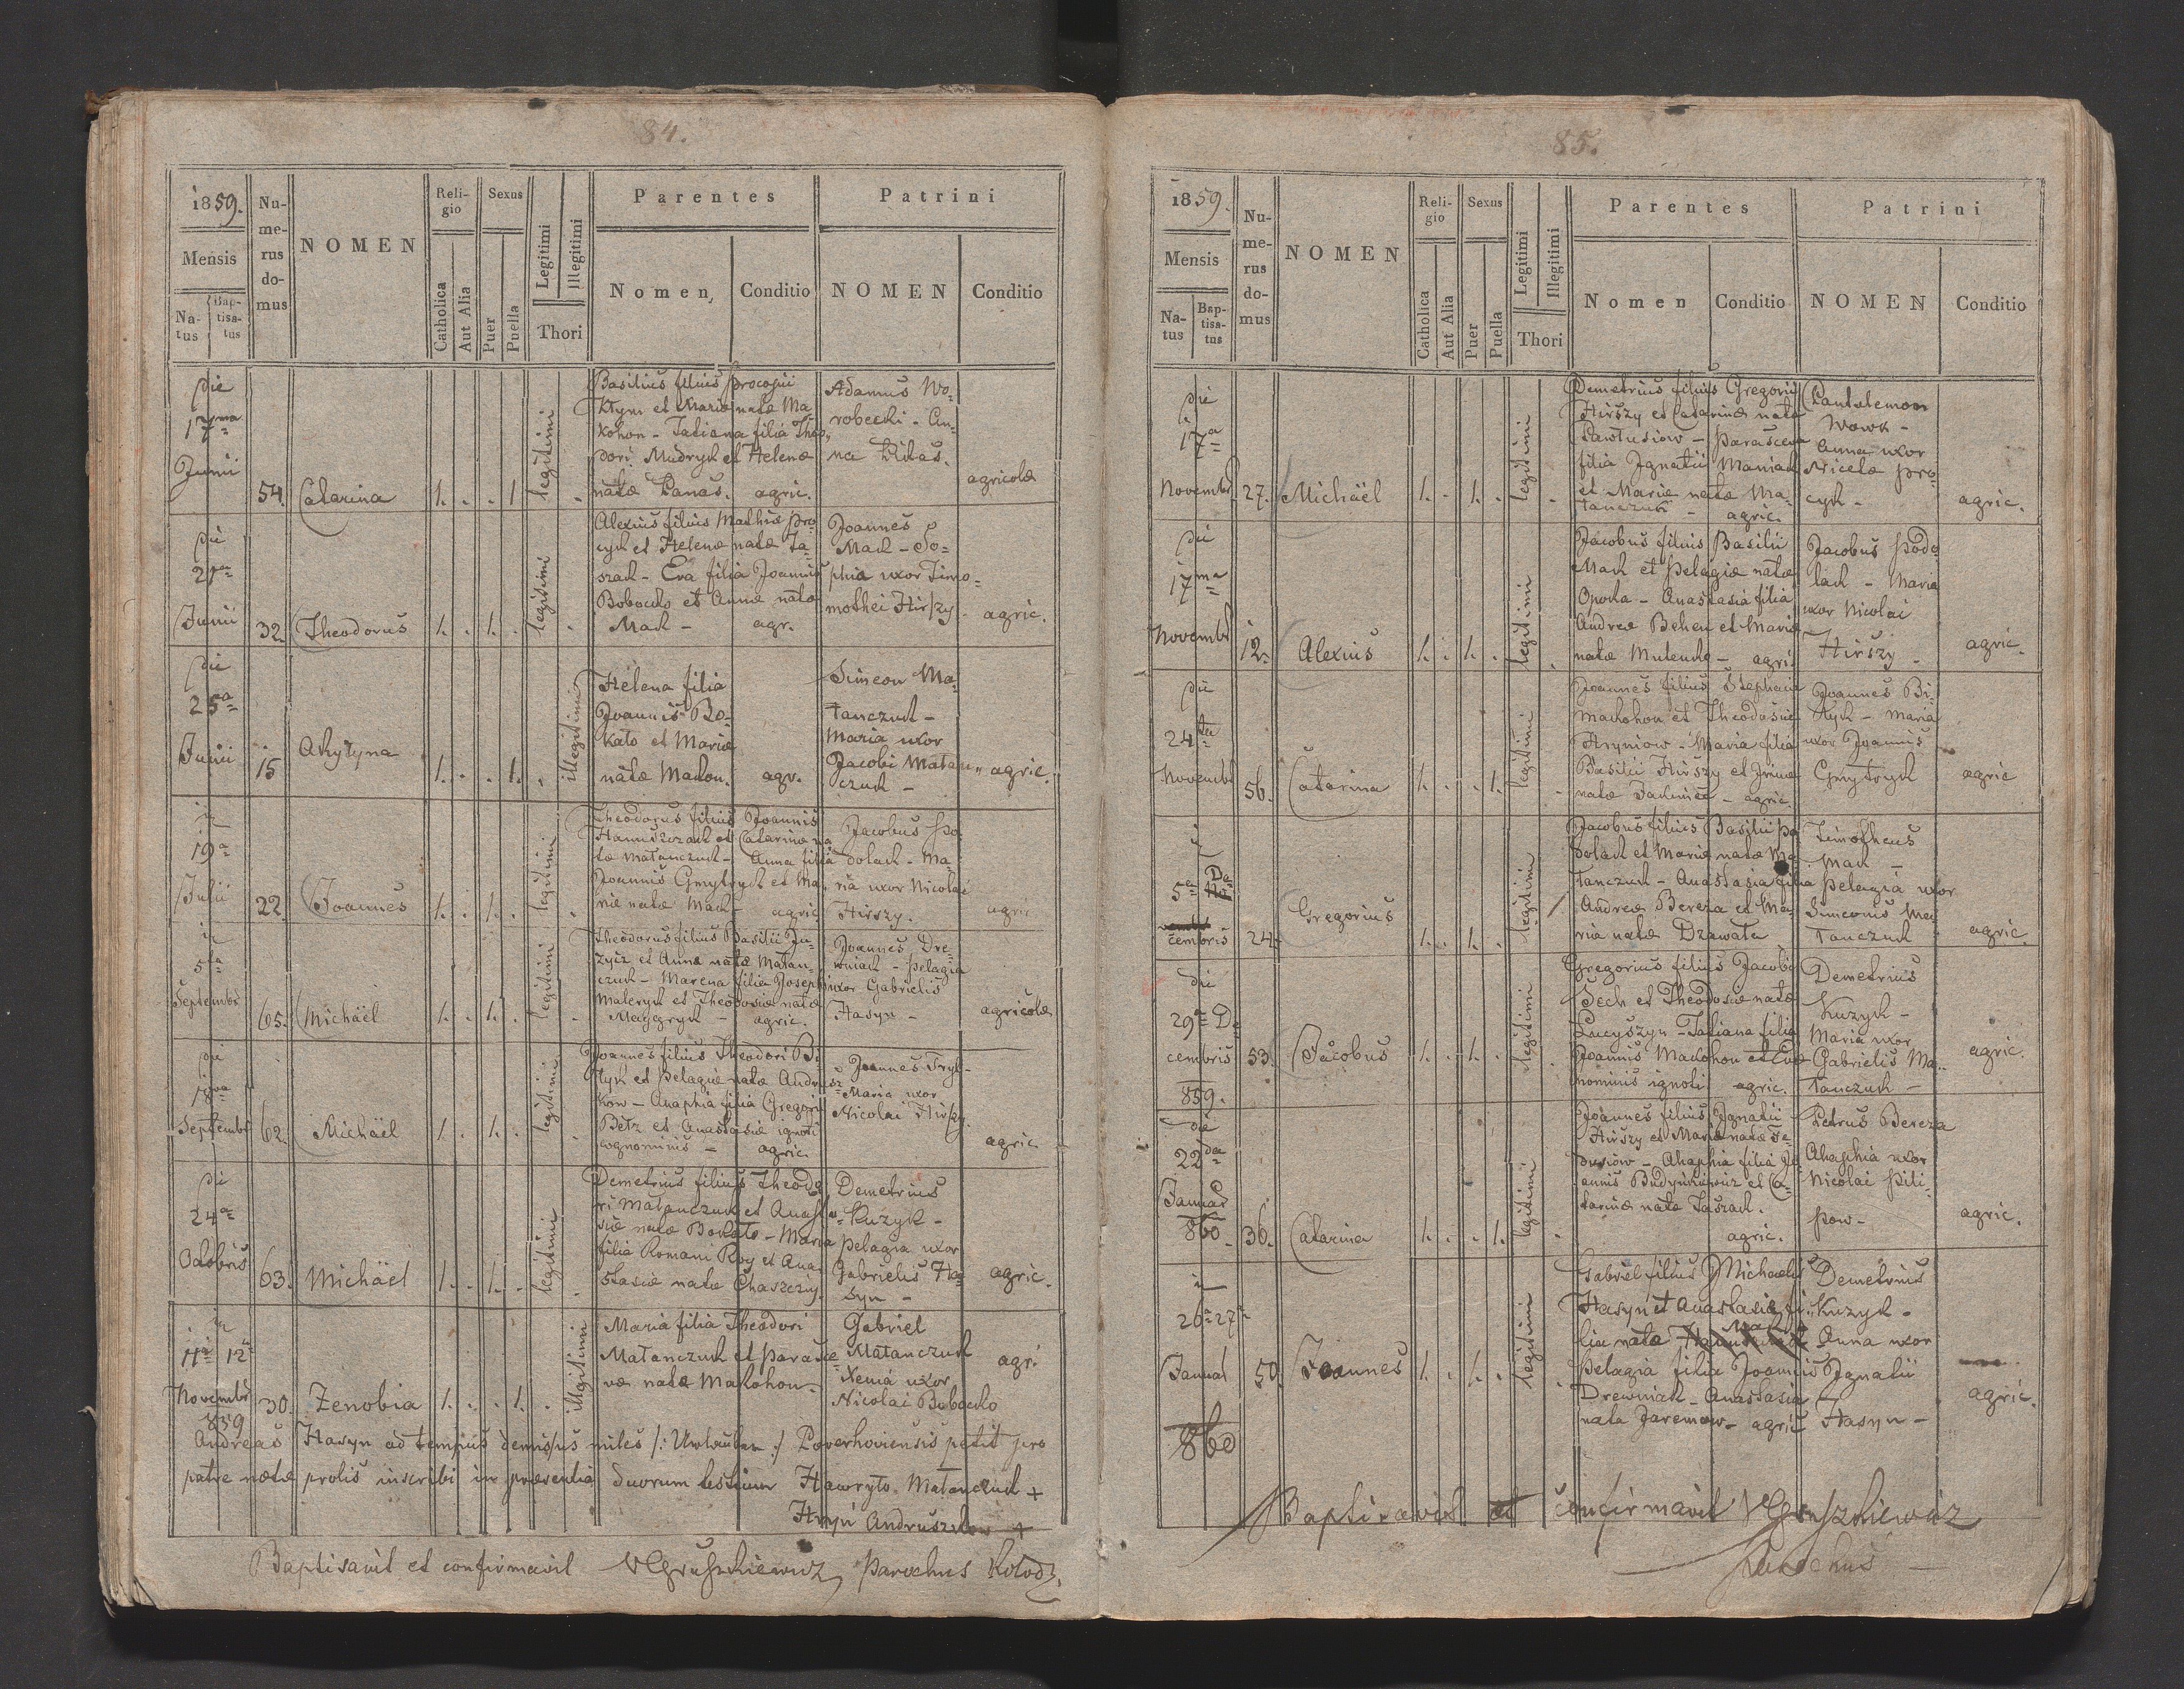 84.
1859.
Mensis
Na-
tus
Bap-
tisa-
tus
Nu-
me-
rus
do-
mus
NOMEN
Reli-
gio
Catholica
Aut Alia
Sexus
Puer
Puella
Legitimi
Illegitimi
Thori
Parentes
Nomen,
Conditio
Patrini
NOMEN
Conditio
die
17ma
Junii
54.
Catarina
1. . . 1
legitimi
Basilius filius Procopii
Kłym et Mariæ natæ Ma-
kohon - Tatiana filia Theo-
dori Mudryk et Helenæ
natæ Panas. agric.
Adamus Wo-
robecki - An-
na Łukas.
agricolæ
die
21a
Junii
32.
Theodorus
1. . 1. .
legitimi
Alexius filius Mathiæ Pro-
cyk et Helenæ natæ Ja-
szad - Eva filia Joannis
Bobocko et Annæ natæ
Mack - agr.
Joannes
Mack - So-
phia uxor Timo-
mothei Hirszy.
agric.
die
25a
Junii
15
Akyłyna
1. . . 1.
illegitimi
Helena filia
Joannis Bo-
kało et Mariæ
natæ Makon. agr.
Simeon Ma-
tanczuk -
Maria uxor
Jacobi Matan-
czuk -
agric.
19a
Julii
22.
Joannes
1. . 1. .
legitimi
Theodorus filius Joannis
Hanuszczack et Catarinæ na-
tæ Matanczuk - Anna filia
Joannis Gmytryk et Ma-
riæ natæ Mack - agric
Jacobus Po-
dolack - Ma-
ria uxor Nicolai
Hirszy.
agric
5ta
Septembr
65.
Michäel
1. . 1. .
legitimi
Theodorus filius Basilii Ju-
zycz et Annæ natæ Matan-
czuk - Marena filia Josephi
Materyk et Theodosiæ natæ
agric.
Joannes Dre-
wniack - Pelagia
uxor Gabrielis
Hasyn -
agricolæ
die
18va
Septembr
62.
Michäel
1. . 1. .
legitimi
Joannes filius Theodori Bi-
łyk et Pelagiæ natæ Andrusz-
kow - Anaphia filia Gregorii
Betz et Anastasiæ ignoti
cognominis - agric.
Joannes Tryt-
Maria uxor
Nicolai Hirszy.
agric
die
24a
Octobris
63.
Michäel
1. . 1. .
legitimi
Demetrius filius Theodo-
ri Matanczuk et Anasta-
siæ natæ Bokało - Maria
filia Romani Roy et Ana-
stasiæ natæ Chaszczij.
Demetrius
Kuzyk -
Pelagia uxor
Gabrielis Ha-
syn -
agric.
11a 12a
Novembr
859
30.
Zenobia
1. . . 1. .
illegitimi
Maria filia Theodori
Matanczuk et Parasce-
væ natæ Makohon.
Gabriel
Matanczuk
Xenia uxor
Nicolai Bobocko
agri
Andreas Hasyn ad tempus demissus miles /: Urlauber :/ Powerhoviensis petit pro
patre natæ prolis inscribi in præsentia duorum testium Hawryło Matanczuk +
Hryń Andruszkow +
Baptisavit et confirmavit Gruszkiewicz Parochus Kołodz.
85.
1859.
Mensis
Na-
tus
Bap-
tisa-
tus
Nu-
me-
rus
do-
mus
NOMEN
Reli-
gio
Catholica
Aut Alia
Sexus
Puer
Puella
Legitimi
Illegitimi
Thori
Parentes
Nomen
Conditio
Patrini
NOMEN
Conditio
die
17a
Novembr
27.
Michäel
1. . 1. .
legitimi
Demetrius filius Gregorii
Hirszy et Catarinæ natæ
Pawlusiow - Parasceva
filia Ignatii Maniack
et Mariæ natæ Ma-
tanczuk - agric.
Pantalemon
Wowk -
Anna uxor
Nicolæ Pro-
cyk -
agric.
die
17ma
Novembr
12.
Alexius
1. . 1. .
legitimi
Jacobus filius Basilii
Mack et Pelagiæ natæ
Opoka - Anastasia filia
Andreæ Behen et Mariæ
natæ - agric
Jacobus Podo-
lack - Maria
uxor Nicolai
Hirszy -
agric.
die
24ta
Novembr
56.
Catarina
1. . . 1.
legitimi
Joannes filius Stephani
Makohon et Theodosiæ
Hryniow - Maria filia
Basilii Hirszy et Irinæ
natæ - agric.
Joannes Bi-
łyk - Maria
uxor Joannis
Gmytryk
agric
5a De-
cembris
24.
Gregorius
1. . 1. .
legitimi
Jacobus filius Basilii Po-
dolack et Mariæ natæ Ma-
tanczuk - Anastasia filia
Andreæ Bereza et Ma-
ria natæ Dzawała
Timotheus
Mack -
Pelagia uxor
Simeonis Ma-
tanczuk
agric.
die
29a De-
cembris
859.
53.
Jacobus
1. . 1. .
legitimi
Gregorius filius Jacobi
Sech et Theodosiæ natæ
Lucyszyn - Tatiana filia
Joannis Makohon et Evæ
nominis ignoti agric.
Demetrius
Kuzyk -
Maria uxor
Gabrielis Ma-
tanczuk -
agric.
die
22da
Januar
860
36.
Catarina
1. . . 1.
legitimi
Joannes filius Ignatii
Hirszy et Mariæ natæ Fe-
dusiow - Ahaphia filia Jo-
annis Budynkiewicz et Ca-
tarinæ natæ Jaszack.
agric.
Petrus Bereza
Ahaphia uxor
Nicolai Pili-
pow -
agric.
26a 27a
Januar
860
50.
Joannes
1. . 1. .
legitimi
Gabriel filius Michaelis
Hasyn et Anastasiæ fi-
lia natæ
Pelagia filia Joannis
Drewniack - Anastasia
nata Jaremow - agric
Demetrius
Kuzyk -
Anna uxor
Ignatii
Hasyn -
agric.
Baptisavit et confirmavit Gruszkiewicz
Parochus